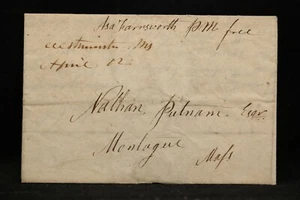 Asa Farnsworth P.M free
Westminster Ms
April 12
Nathan Putnam Esqr
Montague
Mass